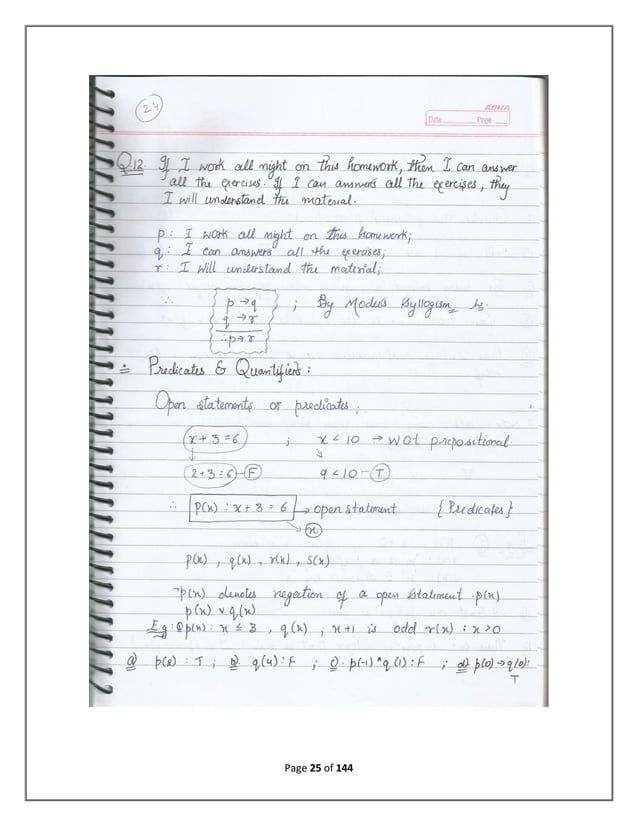 24
ADINA
Date Page
Q.12. If I work all night on this homework, then I can answer
all the exercises. If I can answers all the exercises, they
I will understand the material.
p : I work all night on this homework;
q : I can answers all the exercises;
r : I will understand the material;
∴ p → q ; By Modus Syllogism
q → r
∴ p → r
Predicates & Quantifiers :
Open statements or predicates ;
x + 3 = 6 ; x < 10 → Not prepositional.
2 + 3 = 6 – F 9 < 10 – T
∴ p(x) : x + 3 = 6 → open statment { Predicates }
x
p(x) , q(x) , r(x) , s(x)
¬p(x) denotes negation of a open statment . p(x)
p(x) ∨ q(x)
E.g : p(x) : x ≤ 3 , q(x) ; x+1 is odd r(x) : x > 0
a) p(2) : T ; b). q(4) : F ; c). p(-1) ^ q(1) : F ; d). p(0) → q(0) :
T
Page 25 of 144